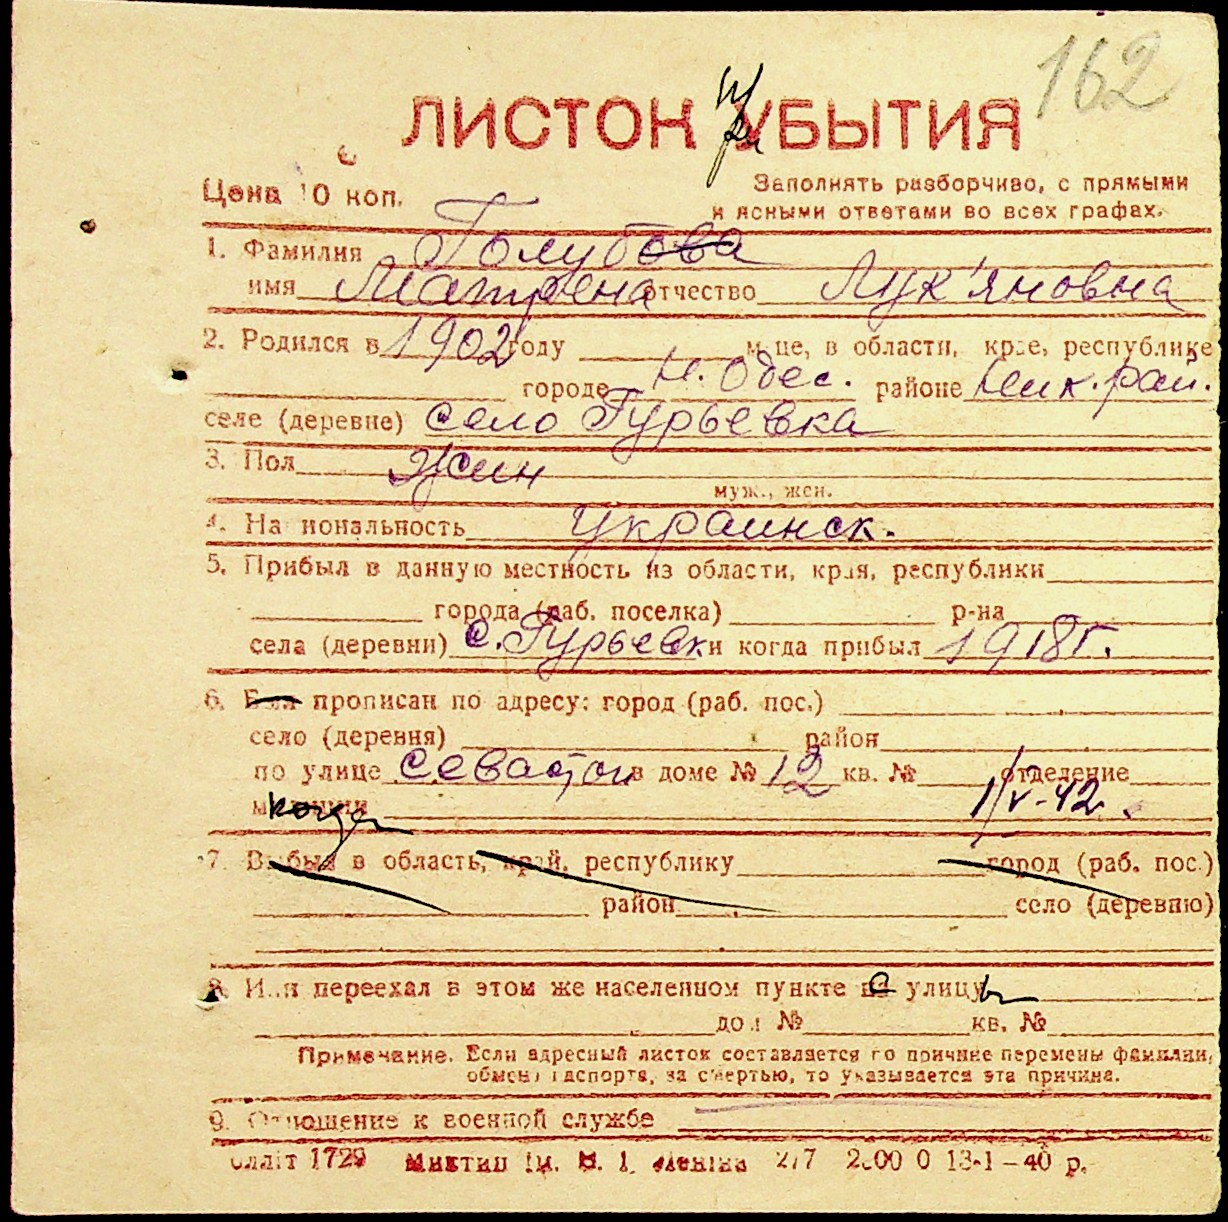 162
ЛИСТОК УБЫТИЯ
при
Цена 10 коп.
Заполнять разборчиво, с прямыми
и ясными ответами во всех графах.
1. Фамилия Голубова
имя Матрена отчество Лук'яновна
2. Родился в 1902 году м-це, в области, крае, республике
городе Н. Одес. районе Ник. рай.
селе (деревне) село Гурьевка
3. Пол Жин
муж., жен.
4. Национальность Украинск.
5. Прибыл в данную местность из области, края, республики
города (раб. поселка) р-на
села (деревни) с. Гурьевк и когда прибыл 1918 г.
6. Был прописан по адресу: город (раб. пос.)
село (деревня) район
по улице Севастоп в доме № 12 кв. № отделение
милиции когда 1/V-42.
7. Выбыл в область, край, республику город (раб. пос.)
район село (деревню)
8. Или переехал в этом же населенном пункте с улицы
дом № кв. №
Примечание. Если адресный листок составляется по причине перемены фамилии,
обмена паспорта, за смертью, то указывается эта причина.
9. Отношение к военной службе
Оллiт 1729 Миктип iм. В. I. Ленiна 277 2000 0 13-1-40 р.